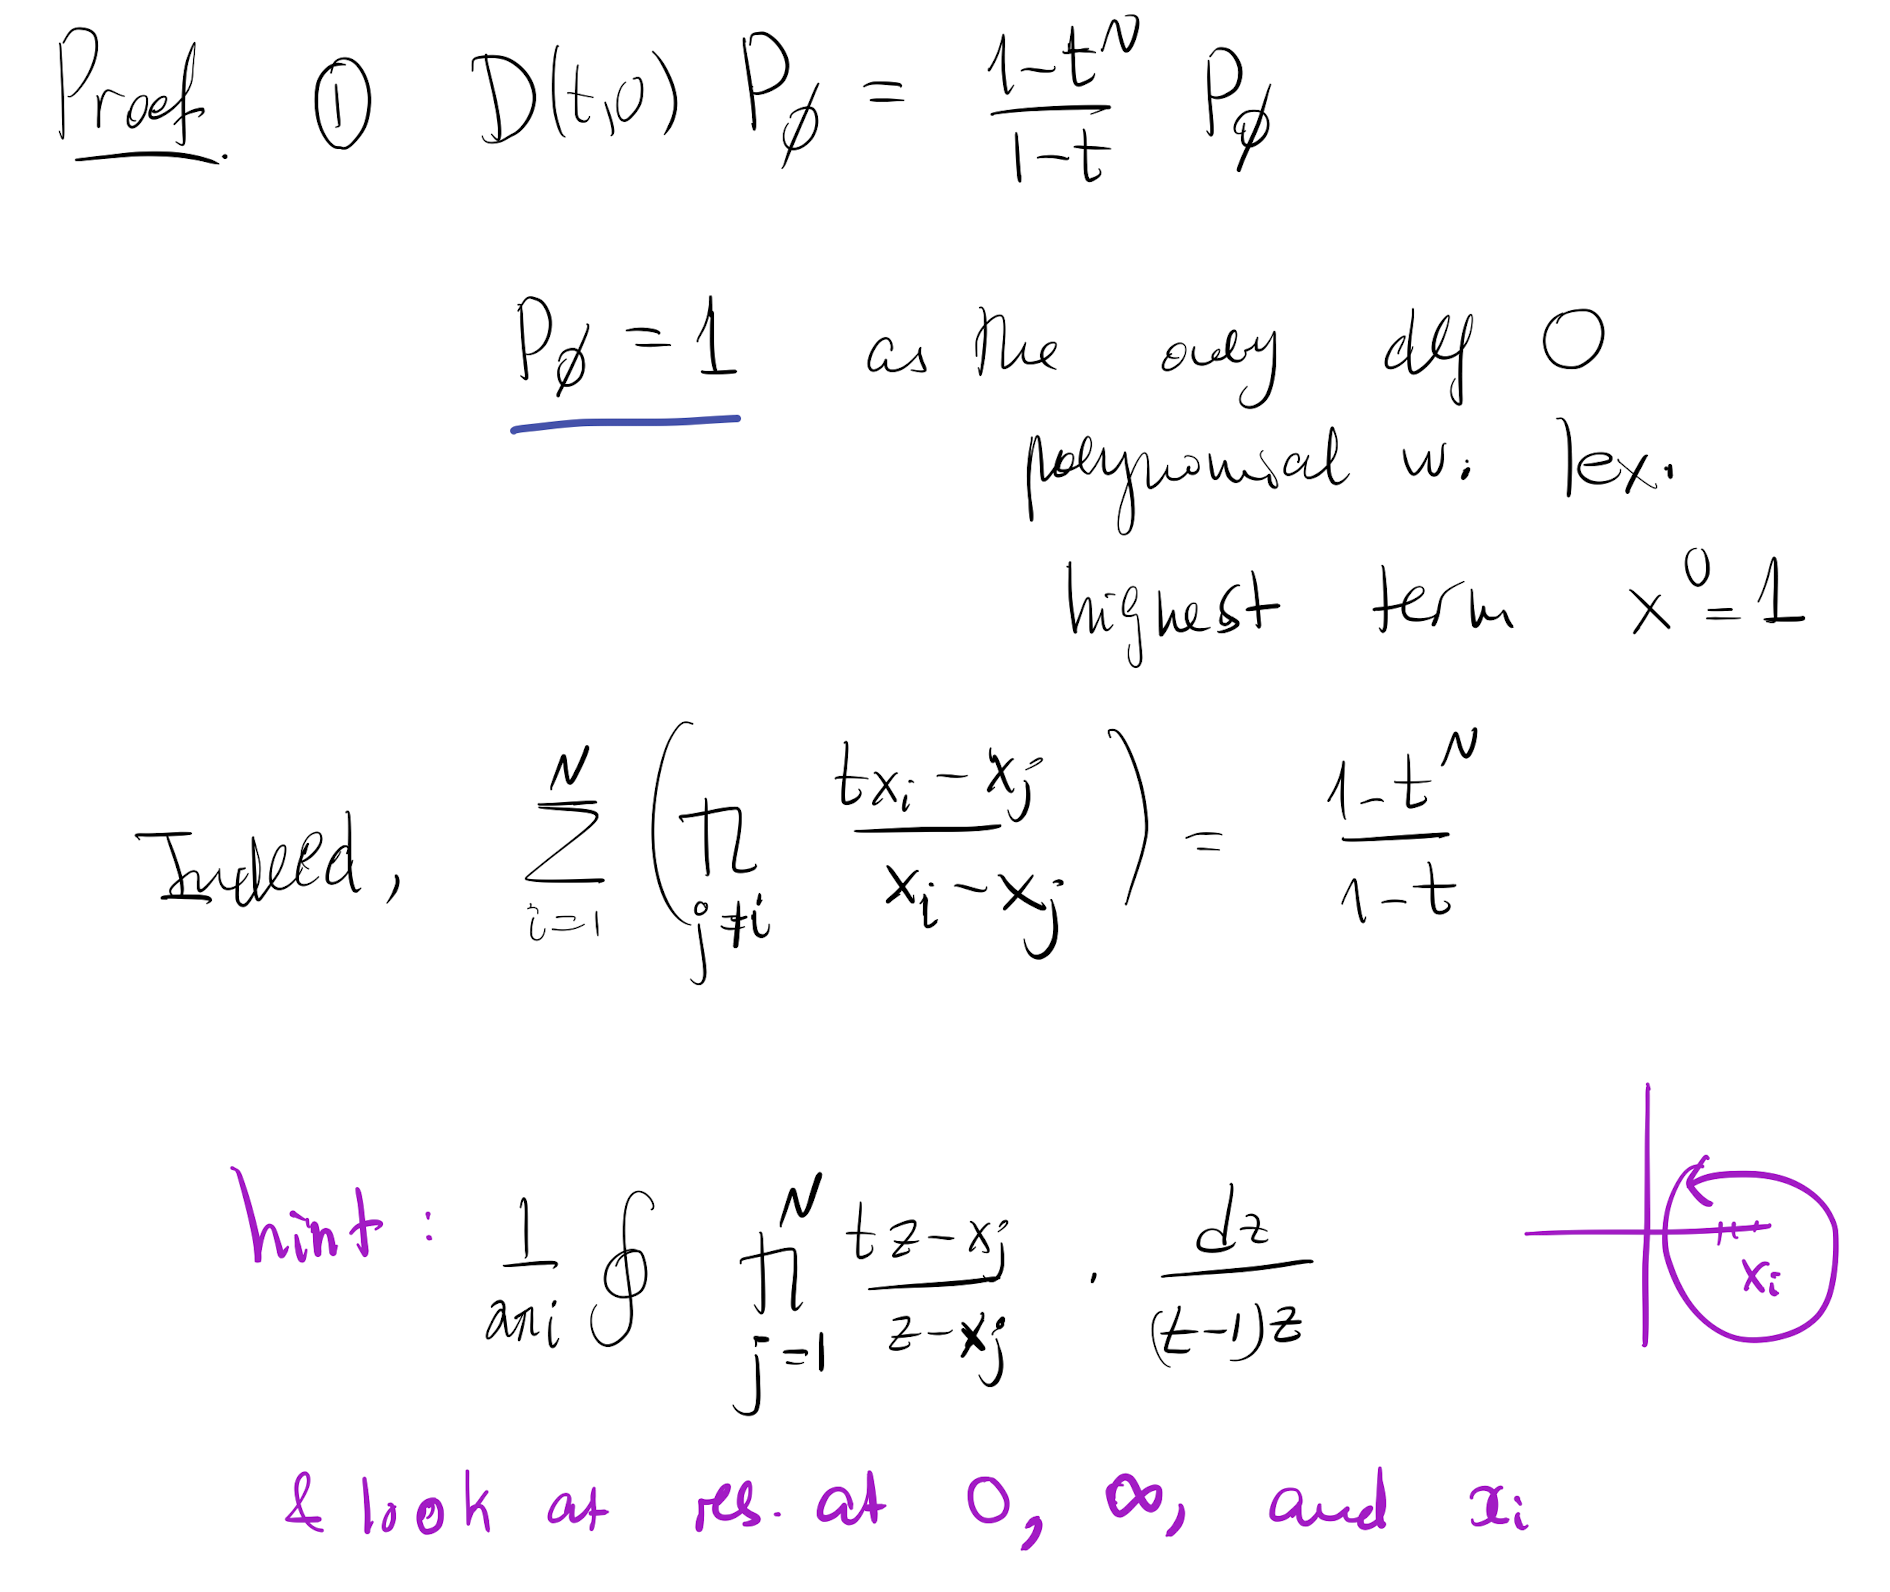 Proof. ① D(t,0) P_∅ = \frac{1-t^N}{1-t} P_∅
P_∅ = 1 as the only deg 0
polynomial w. lex.
highest term x^0 = 1
Indeed, \sum_{i=1}^{N} \left( \prod_{j≠i} \frac{tx_i - x_j}{x_i - x_j} \right) = \frac{1-t^N}{1-t}
hint: \frac{1}{2πi} \oint \prod_{j=1}^{N} \frac{tz - x_j}{z - x_j} \cdot \frac{dz}{(t-1)z}
x_i
& look at res. at 0, ∞, and x_i